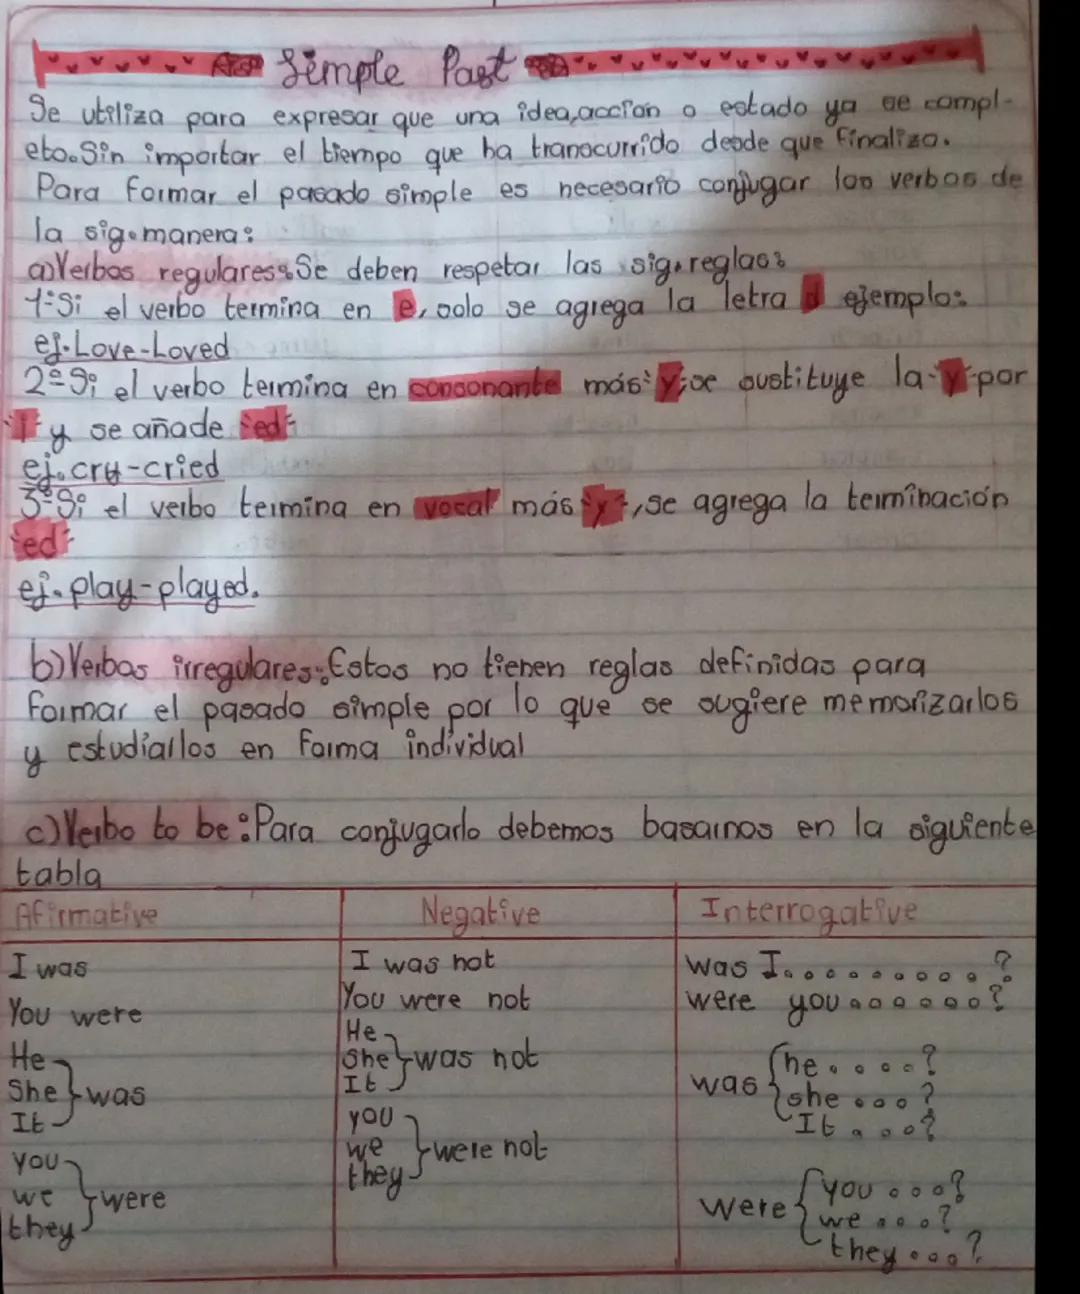 Simple Past
Se utiliza para expresar que una idea,acción o estado ya se compl-
eto.Sin importar el tiempo que ha transcurrido desde que finalizo.
Para formar el pasado simple es necesario conjugar los verbos de
la sig.manera:
a)Verbos regulares:Se deben respetar las sig.reglas:
1º Si el verbo termina en e, solo se agrega la letra d ejemplo:
ej.Love-Loved
2º Si el verbo termina en consonante más y;se sustituye la y por
i y se añade ed
ej.cry-cried
3º Si el verbo termina en vocal más y, se agrega la terminación
ed
ej.play-played.
b)Verbos irregulares:Estos no tienen reglas definidas para
formar el pasado simple por lo que se sugiere memorizarlos
y estudiarlos en forma individual
c)Verbo to be:Para conjugarlo debemos basarnos en la siguiente
tabla
Afirmative Negative Interrogative
I was
You were
He
She } was
It
you
we } were
they
I was not
You were not
He
She } was not
It
you
we } were not
they
was I..........?
were you.......?
was { he.....?
she....?
It....?
were { you....?
we....?
they....?